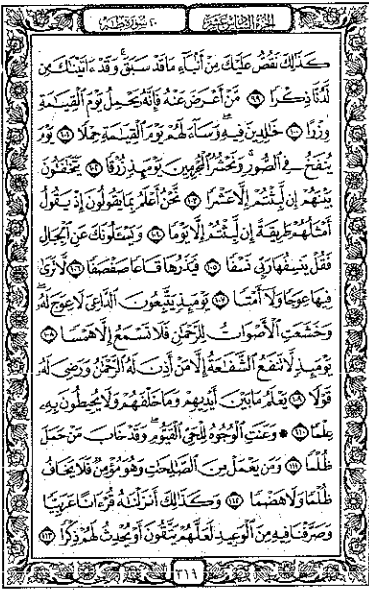 الجزء السادس عشر ٢٠ سورة طه
كَذَٰلِكَ نَقُصُّ عَلَيْكَ مِنْ أَنۢبَآءِ مَا قَدْ سَبَقَ ۚ وَقَدْ ءَاتَيْنَٰكَ مِن
لَّدُنَّا ذِكْرًا ٩٩ مَّنْ أَعْرَضَ عَنْهُ فَإِنَّهُۥ يَحْمِلُ يَوْمَ ٱلْقِيَٰمَةِ
وِزْرًا ١٠٠ خَٰلِدِينَ فِيهِ ۖ وَسَآءَ لَهُمْ يَوْمَ ٱلْقِيَٰمَةِ حِمْلًا ١٠١ يَوْمَ
يُنفَخُ فِى ٱلصُّورِ ۚ وَنَحْشُرُ ٱلْمُجْرِمِينَ يَوْمَئِذٍ زُرْقًا ١٠٢ يَتَخَٰفَتُونَ
بَيْنَهُمْ إِن لَّبِثْتُمْ إِلَّا عَشْرًا ١٠٣ نَّحْنُ أَعْلَمُ بِمَا يَقُولُونَ إِذْ يَقُولُ
أَمْثَلُهُمْ طَرِيقَةً إِن لَّبِثْتُمْ إِلَّا يَوْمًا ١٠٤ وَيَسْـَٔلُونَكَ عَنِ ٱلْجِبَالِ
فَقُلْ يَنسِفُهَا رَبِّى نَسْفًا ١٠٥ فَيَذَرُهَا قَاعًا صَفْصَفًا ١٠٦ لَّا تَرَىٰ
فِيهَا عِوَجًا وَلَآ أَمْتًا ١٠٧ يَوْمَئِذٍ يَتَّبِعُونَ ٱلدَّاعِىَ لَا عِوَجَ لَهُۥ ۖ
وَخَشَعَتِ ٱلْأَصْوَاتُ لِلرَّحْمَٰنِ فَلَا تَسْمَعُ إِلَّا هَمْسًا ١٠٨
يَوْمَئِذٍ لَّا تَنفَعُ ٱلشَّفَٰعَةُ إِلَّا مَنْ أَذِنَ لَهُ ٱلرَّحْمَٰنُ وَرَضِىَ لَهُۥ
قَوْلًا ١٠٩ يَعْلَمُ مَا بَيْنَ أَيْدِيهِمْ وَمَا خَلْفَهُمْ وَلَا يُحِيطُونَ بِهِۦ
عِلْمًا ١١٠ ۞ وَعَنَتِ ٱلْوُجُوهُ لِلْحَىِّ ٱلْقَيُّومِ ۖ وَقَدْ خَابَ مَنْ حَمَلَ
ظُلْمًا ١١١ وَمَن يَعْمَلْ مِنَ ٱلصَّٰلِحَٰتِ وَهُوَ مُؤْمِنٌ فَلَا يَخَافُ
ظُلْمًا وَلَا هَضْمًا ١١٢ وَكَذَٰلِكَ أَنزَلْنَٰهُ قُرْءَانًا عَرَبِيًّا
وَصَرَّفْنَا فِيهِ مِنَ ٱلْوَعِيدِ لَعَلَّهُمْ يَتَّقُونَ أَوْ يُحْدِثُ لَهُمْ ذِكْرًا ١١٣
٣١٩